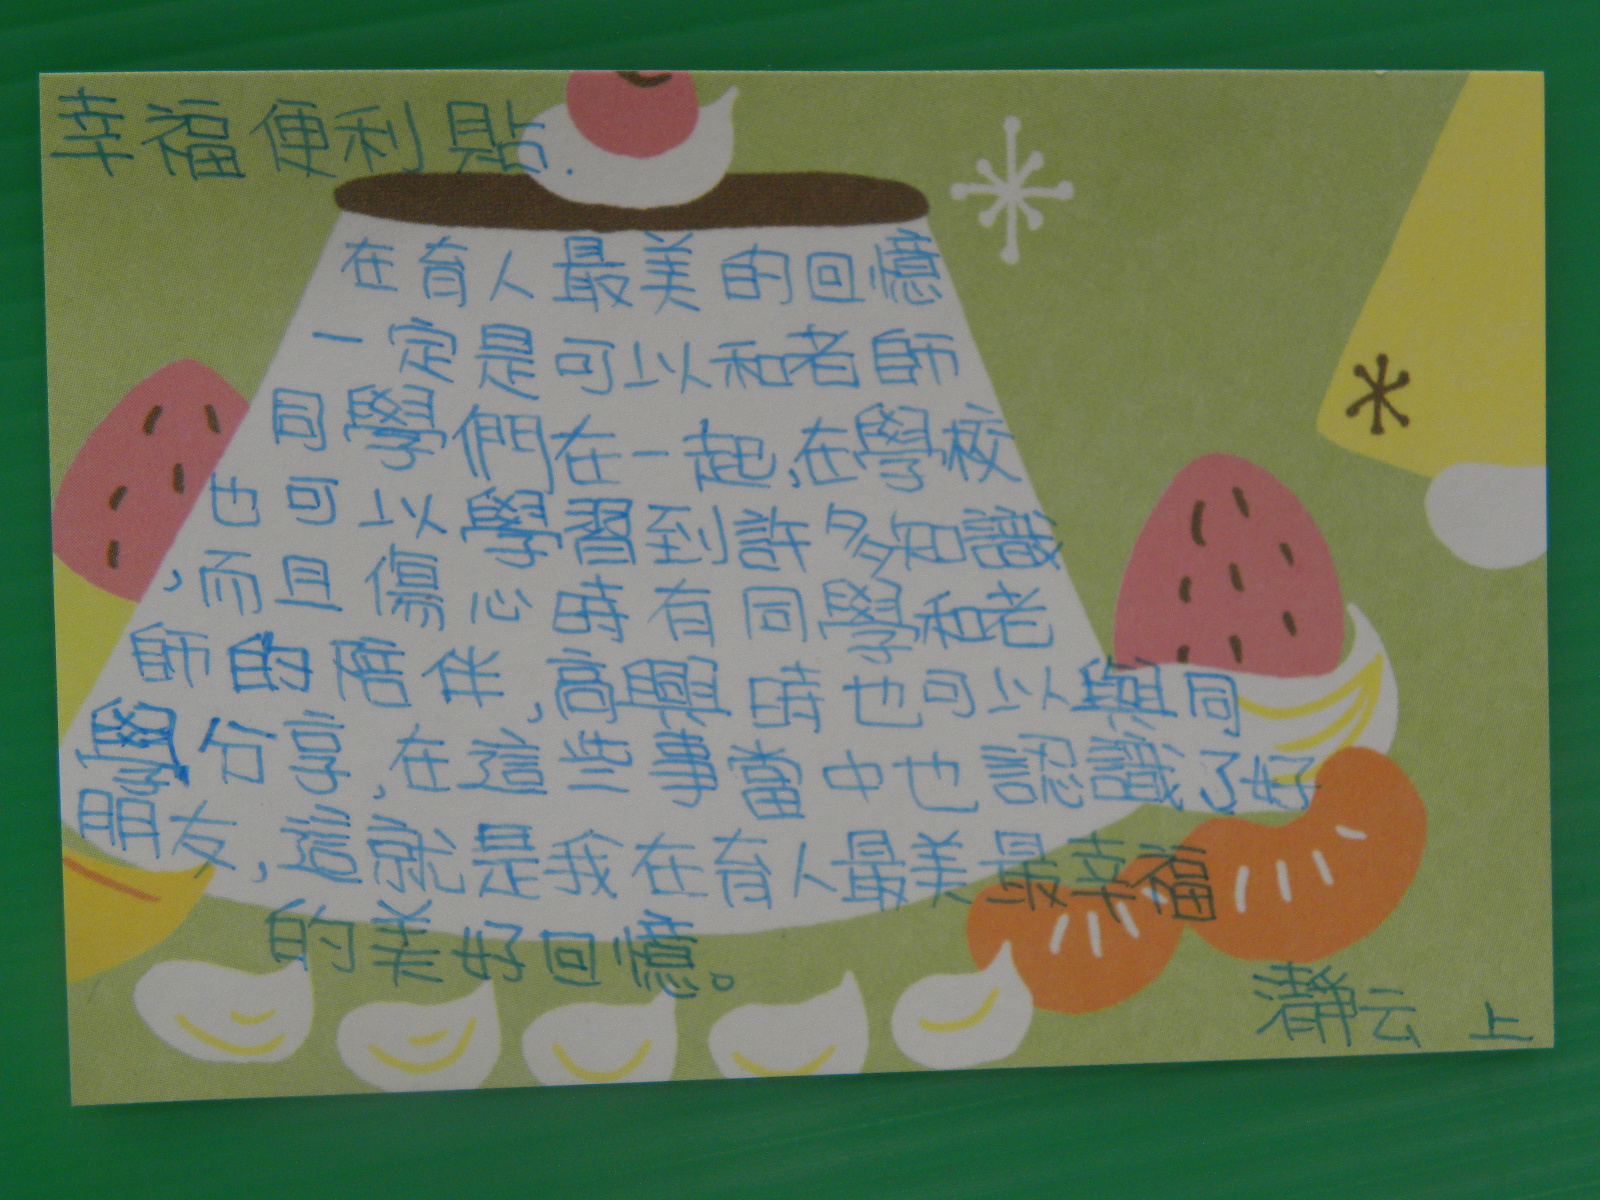 幸福便利貼.
在育人最美的回憶
一定是可以和老師
同學們在一起,在學校
也可以學習到許多知識
,而且傷心時有同學和老
師的陪伴,高興時也可以與同
學分享,在這些事當中也認識了好
朋友,這就是我在育人最美最幸福
的美好回憶。
瀞云 上